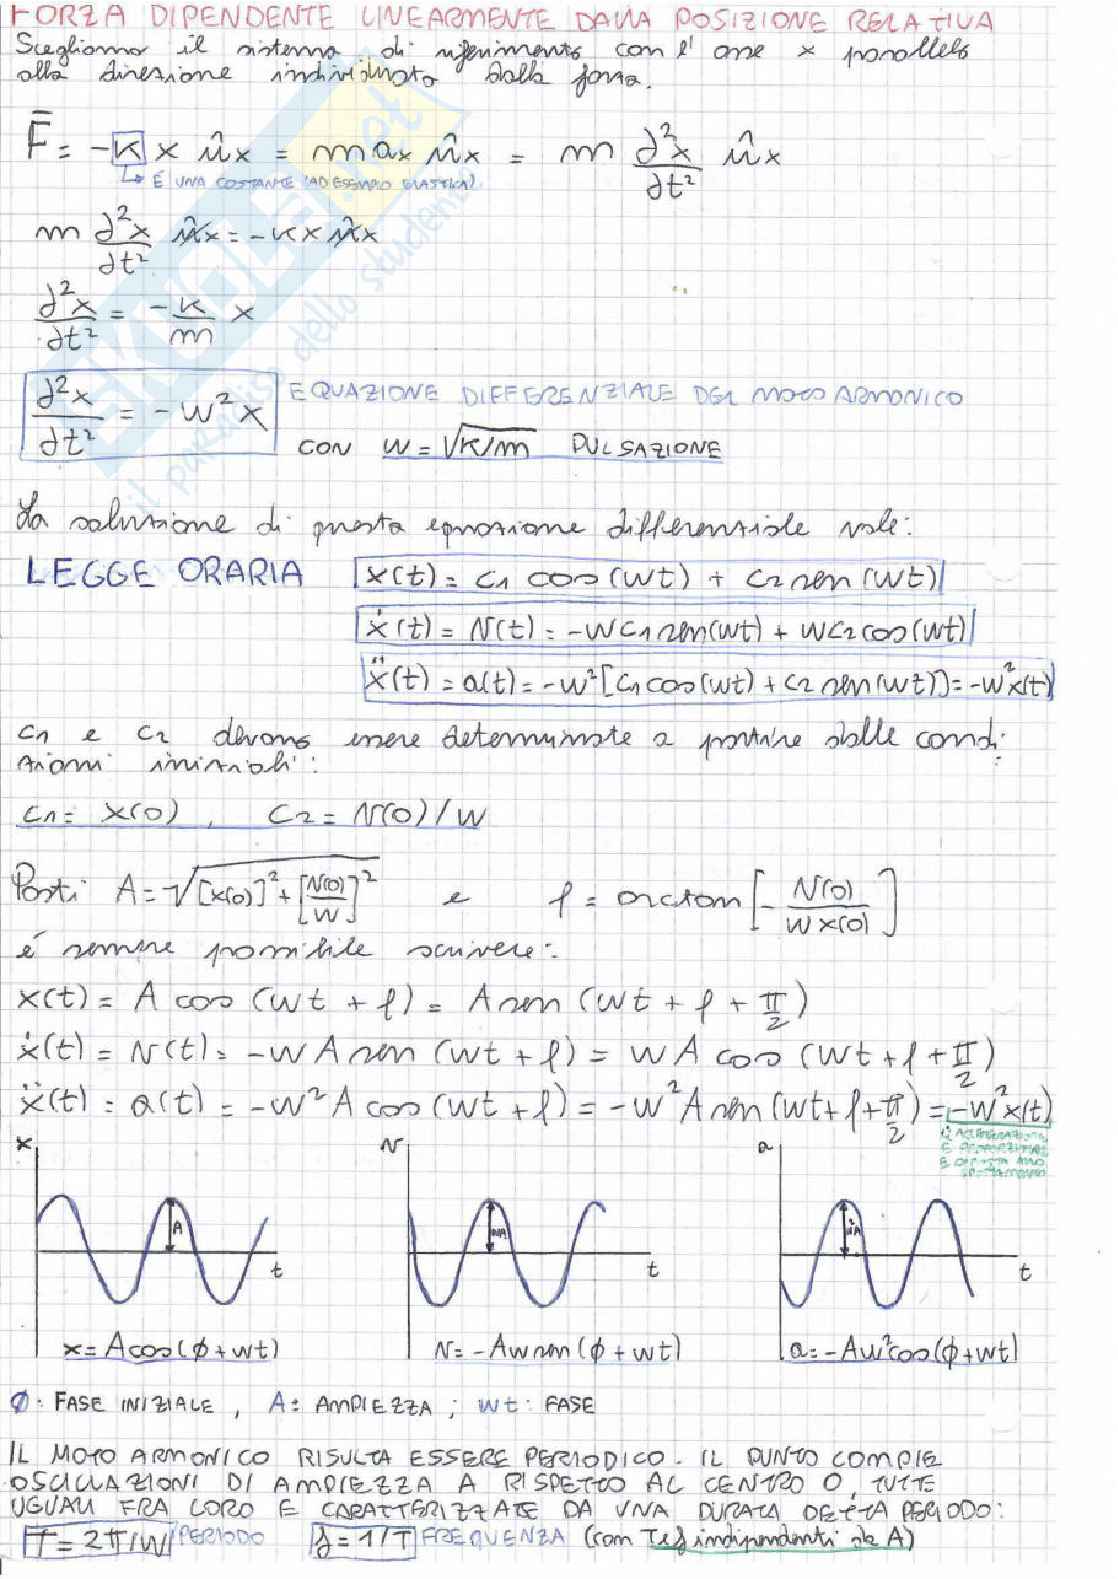 FORZA DIPENDENTE LINEARMENTE DALLA POSIZIONE RELATIVA
Scegliamo il sistema di riferimento con l'asse x parallelo
alla direzione individuata dalla forza.
F̄ = -K x û_x = m a_x û_x = m ∂²x/∂t² û_x
↳ È UNA COSTANTE (AD ESEMPIO ELASTICA)
m ∂²x/∂t² û_x = -K x û_x
∂²x/∂t² = -K/m x
∂²x/∂t² = -W² x EQUAZIONE DIFFERENZIALE DEL MOTO ARMONICO
CON W = √K/m PULSAZIONE
La soluzione di questa equazione differenziale vale:
LEGGE ORARIA x(t) = C1 cos(wt) + C2 sen(wt)
ẋ(t) = v(t) = -WC1 sen(wt) + WC2 cos(wt)
ẍ(t) = a(t) = -W²[C1 cos(wt) + C2 sen(wt)] = -W²x(t)
C1 e C2 devono essere determinate a partire dalle condi-
zioni iniziali:
C1 = x(0) , C2 = v(0)/W
Posti A = √[x(0)]² + [v(0)/W]² e φ = arctan [- v(0)/W x(0)]
é sempre possibile scrivere:
x(t) = A cos (wt + φ) = A sen (wt + φ + π/2)
ẋ(t) = v(t) = -W A sen (wt + φ) = W A cos (wt + φ + π/2)
ẍ(t) = a(t) = -W² A cos (wt + φ) = -W² A sen (wt + φ + π/2) = -W²x(t)
L'ACCELERAZIONE
È PROPORZIONALE
E OPPOSTA ALLO
SPOSTAMENTO
x v a
A WA W²A
t t t
x = A cos(ϕ + wt) v = -Aw sen (ϕ + wt) a = -Aw² cos(ϕ + wt)
Φ: FASE INIZIALE , A: AMPIEZZA ; wt: FASE
IL MOTO ARMONICO RISULTA ESSERE PERIODICO. IL PUNTO COMPIE
OSCILLAZIONI DI AMPIEZZA A RISPETTO AL CENTRO O, TUTTE
UGUALI FRA LORO E CARATTERIZZATE DA UNA DURATA DETTA PERIODO:
T = 2π/W PERIODO f = 1/T FREQUENZA (con T e f indipendenti da A)
SKUOLA.net
il paradiso dello studente